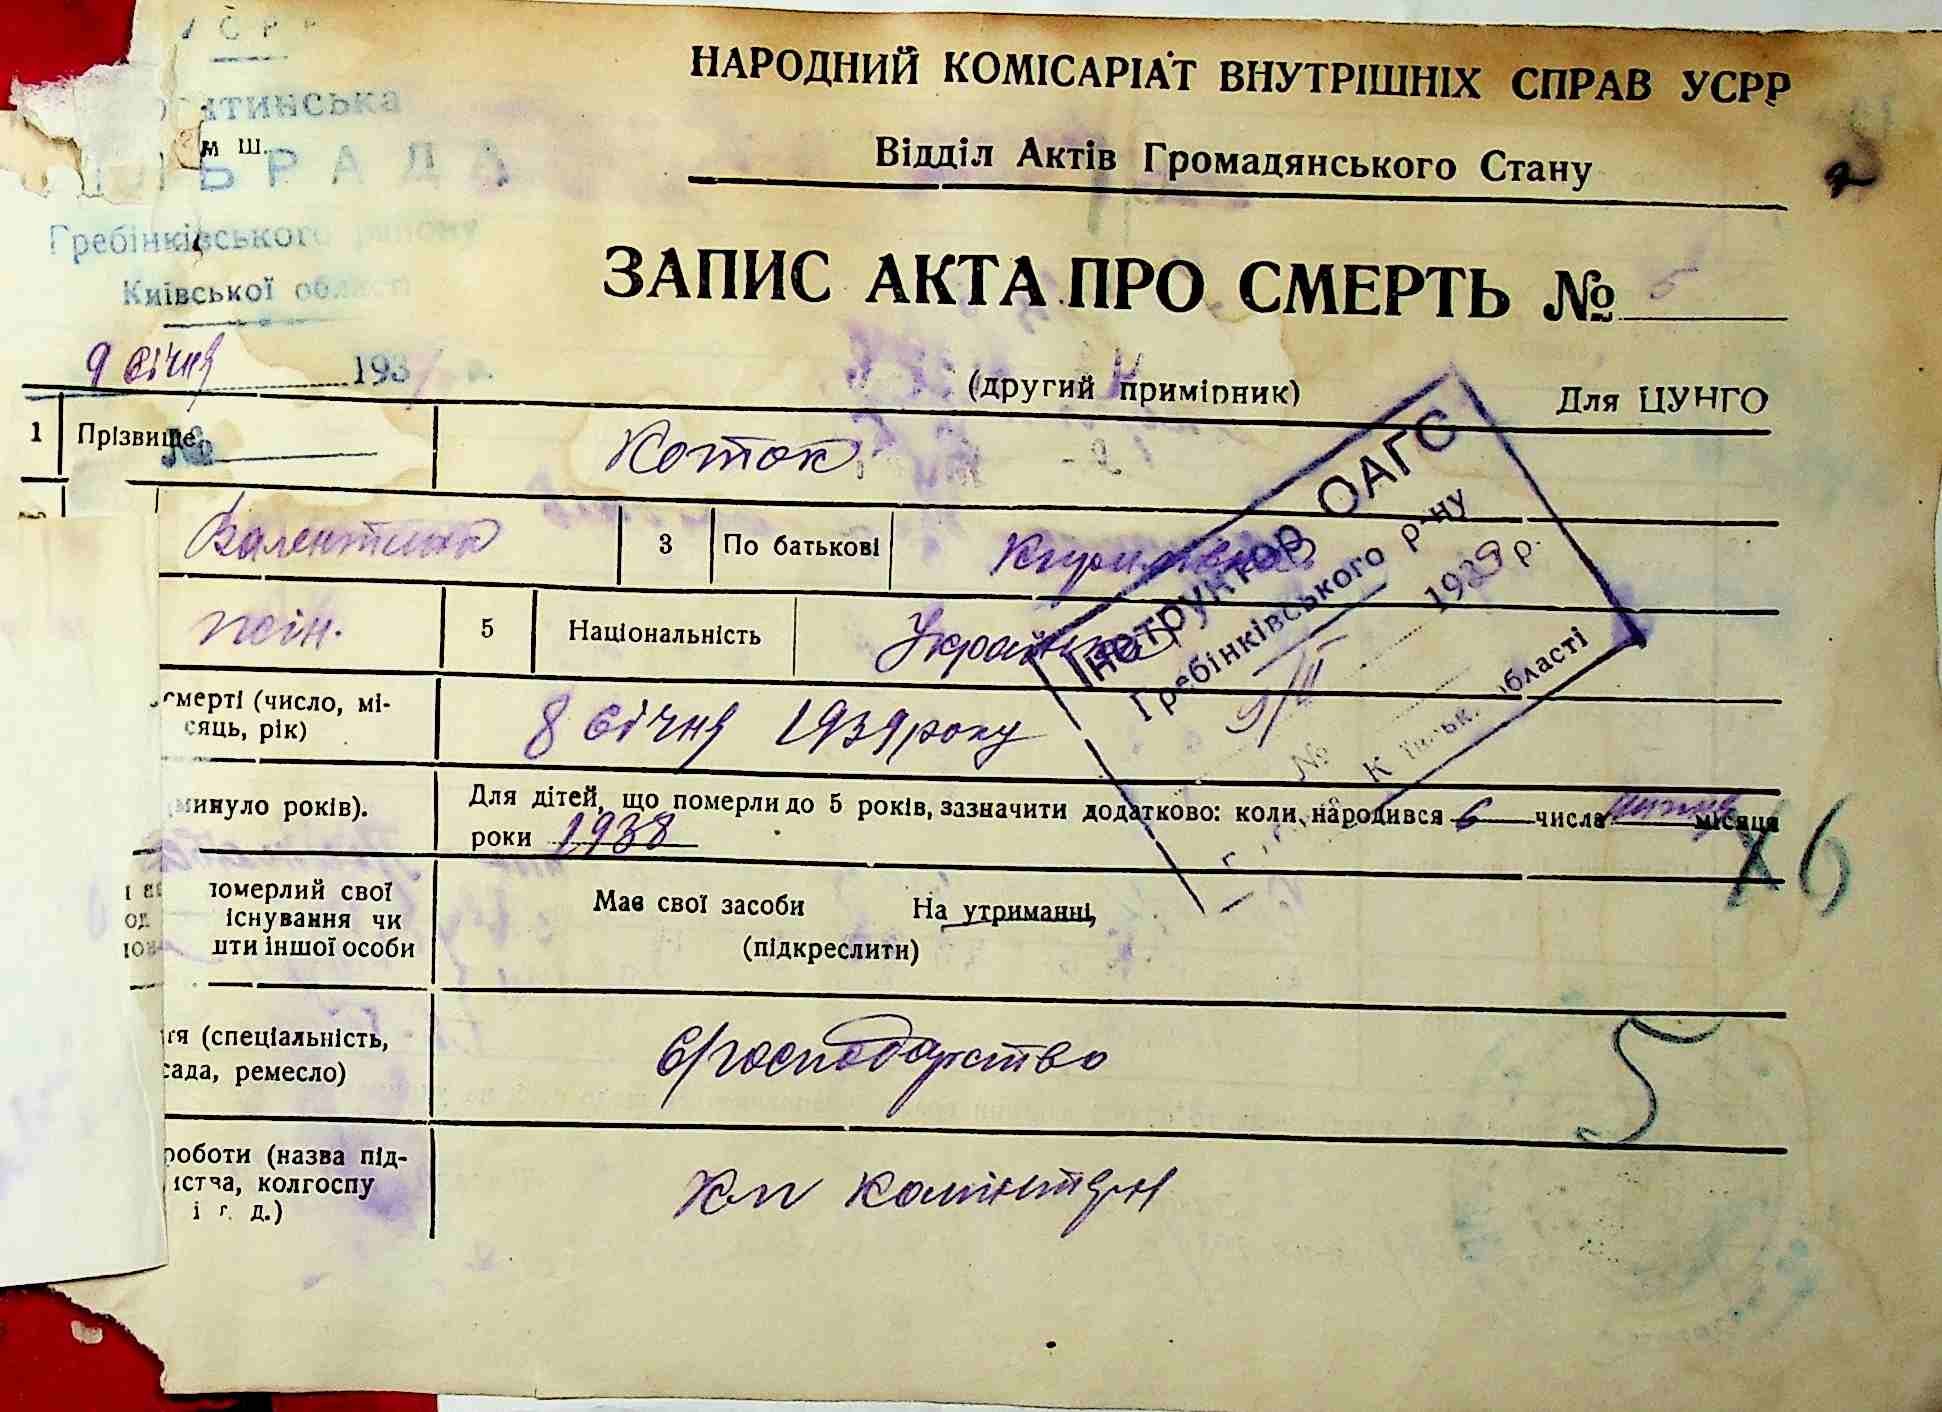 УСРР
НАРОДНИЙ КОМІСАРІАТ ВНУТРІШНІХ СПРАВ УСРР
Відділ Актів Громадянського Стану
м Ш.
ЬРАДА
Гребінківського району
Київської області
ЗАПИС АКТА ПРО СМЕРТЬ № 5
9 січня 193
(другий примірник) Для ЦУНГО
1 Прізвище Коток
№
Валентина 3 По батькові Кирилівна
жін. 5 Національність Українка
смерті (число, мі-
сяць, рік) 8 січня 1939 року
минуло років). Для дітей, що померли до 5 років, зазначити додатково: коли народився 6 числа місяця
роки 1938
померлий свої
існування чи
шти іншої особи
Має свої засоби На утриманні,
(підкреслити)
ття (спеціальність,
сада, ремесло) с/господарство
роботи (назва під-
иства, колгоспу
і г. д.) Комінтерн
Інструктор ОАГС
Гребінківського р-ну
1939 р.
№
Київськ. області
Х6
5